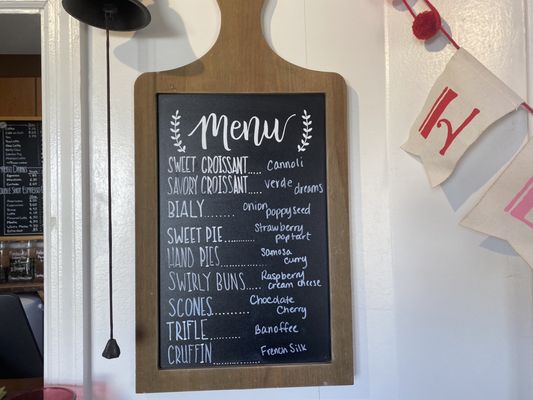 Menu
SWEET CROISSANT..... Cannoli
SAVORY CROISSANT..... verde dreams
BIALY........ onion poppyseed
SWEET PIE........... Strawberry pop tart
HAND PIES........... Samosa curry
SWIRLY BUNS..... Raspberry cream cheese
SCONES.......... Chocolate Cherry
TRIFLE......... Banoffee
CRUFFIN............ French Silk